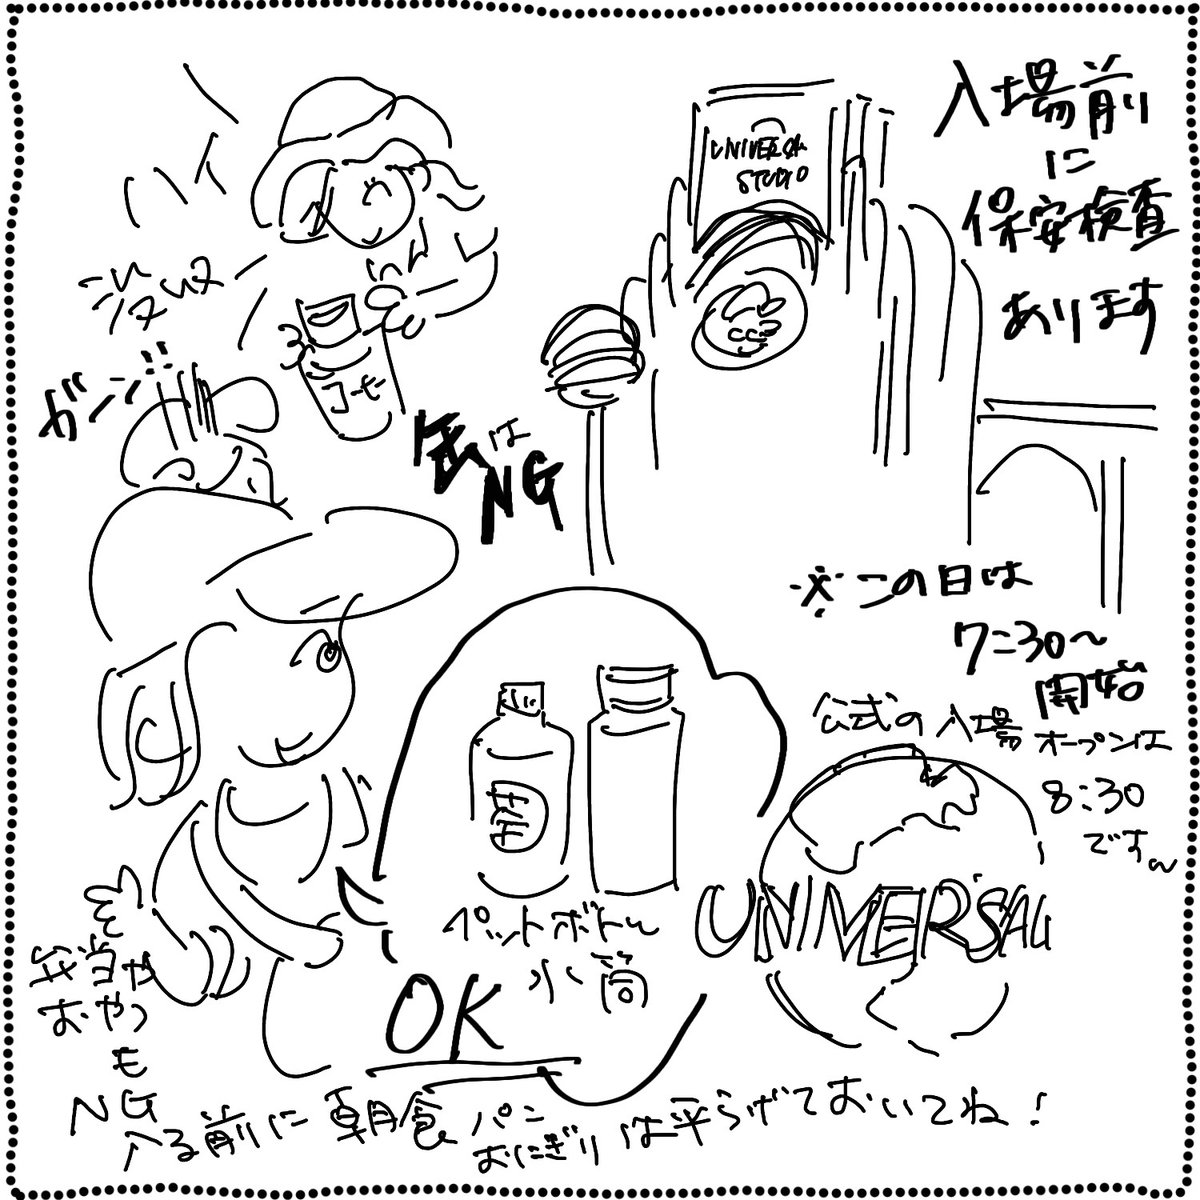 入場前
に
保安検査
あります
UNIVERSAL
STUDIO
ハイ
没収
コーヒー
ガーン!!
缶は
NG
※この日は
7:30〜
開始
公式の入場
オープンは
8:30
です〜
茶
ペットボトル
水筒
OK
UNIVERSAL
弁当や
おやつ
も
NG
入る前に朝食パン
おにぎり
は平らげておいてね!